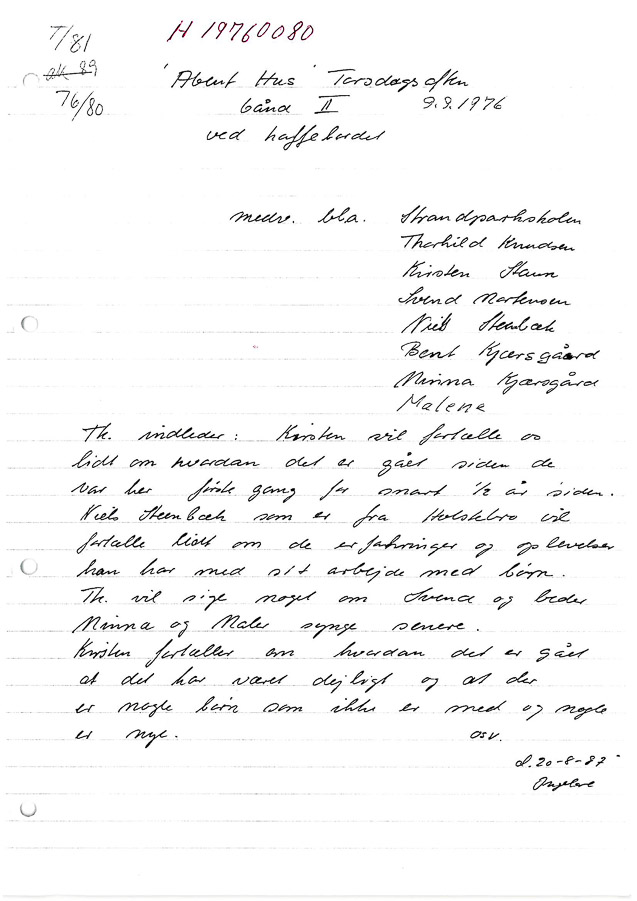 T/81
H 19760080
ak 89
76/80
'Åbent Hus' Torsdagsaften
bånd II 9.9.1976
ved kaffebordet
medv. bla. Strandparkskolen
Thorhild Knudsen
Kirsten Staun
Svend Mortensen
Niels Steenbæk
Bent Kjærsgård
Minna Kjærsgård
Malene
Th. indleder: Kirsten vil fortælle os
lidt om hvordan det er gået siden de
var her første gang for snart 1/2 år siden.
Niels Steenbæk som er fra Holstebro vil
fortælle lidt om de erfahringer og oplevelser
han har med sit arbejde med børn.
Th. vil sige noget om Svend og beder
Minna og Malen synge senere.
Kirsten fortæller om hvordan det er gået
at det har været dejligt og at der
er nogle børn som ikke er med og nogle
er nye. osv.
d. 20-8-87